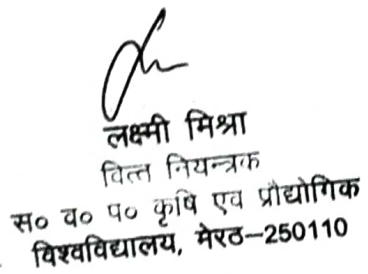 लक्ष्मी मिश्रा
वित्त नियन्त्रक
स० व० प० कृषि एव प्रौद्योगिक
विश्वविद्यालय, मेरठ-250110